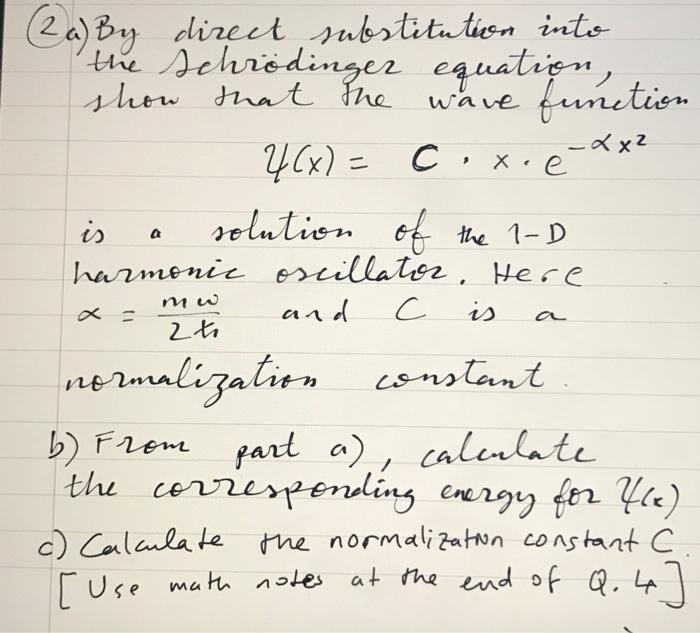 2 a) By direct substitution into
the Schrödinger equation,
show that the wave function
ψ(x) = C · x · e^{-αx²}
is a solution of the 1-D
harmonic oscillator. Here
α = mω / 2ħ and C is a
normalization constant.
b) From part a), calculate
the corresponding energy for ψ(x)
c) Calculate the normalization constant C.
[Use math notes at the end of Q. 4]